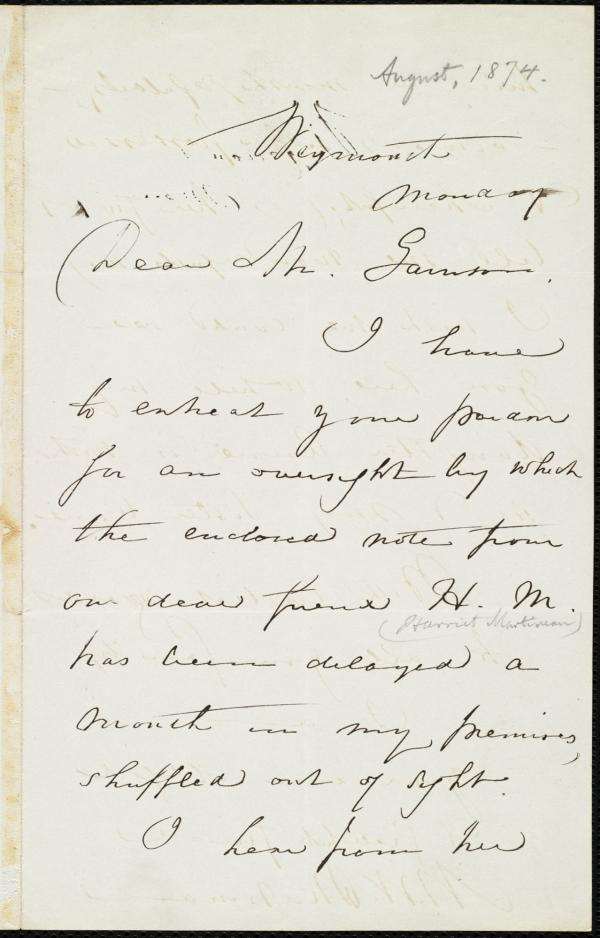 August, 1874.
Weymouth
Monday
Dear Mr. Garrison,
I have
to entreat your pardon
for an oversight by which
the enclosed note from
our dear friend H. M.
(Harriet Martineau)
has been delayed a
month in my premises,
shuffled out of sight.
I hear from her